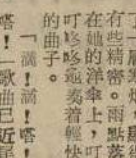 有些精密。雨點落
在她的洋傘上，叮
叮咚咚蕩着輕快
的曲子。
「滴！滴！嗒！
嗒！」歌曲已近尾